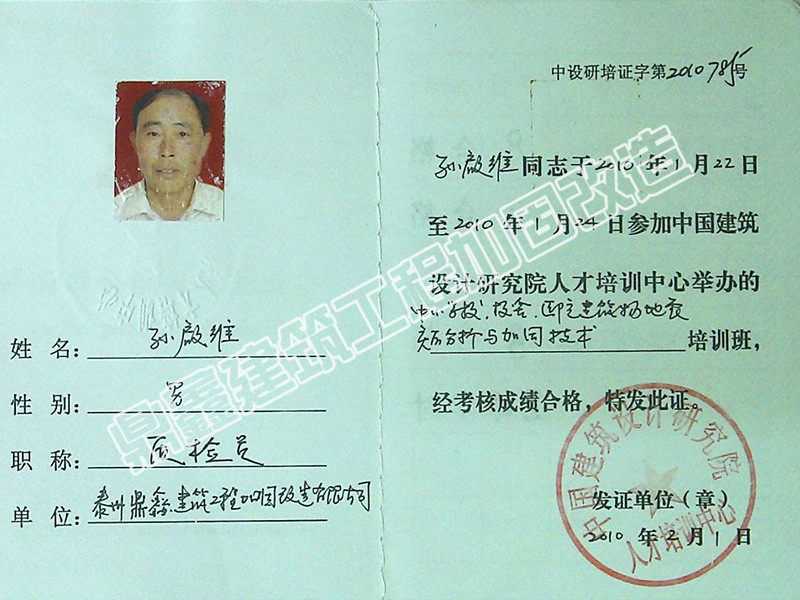 姓名：孙啟维
性别：男
职称：质检员
单位：泰州鼎鑫建筑工程加固改造有限公司
中设研培证字第2010785号
孙啟维同志于2010年1月22日
至2010年1月24日参加中国建筑
设计研究院人才培训中心举办的
中小学校、校舍、医院建筑物地震
灾害分析与加固技术培训班，
经考核成绩合格，特发此证。
发证单位（章）
2010年2月1日
中国建筑设计研究院
人才培训中心
鼎鑫建筑工程加固改造